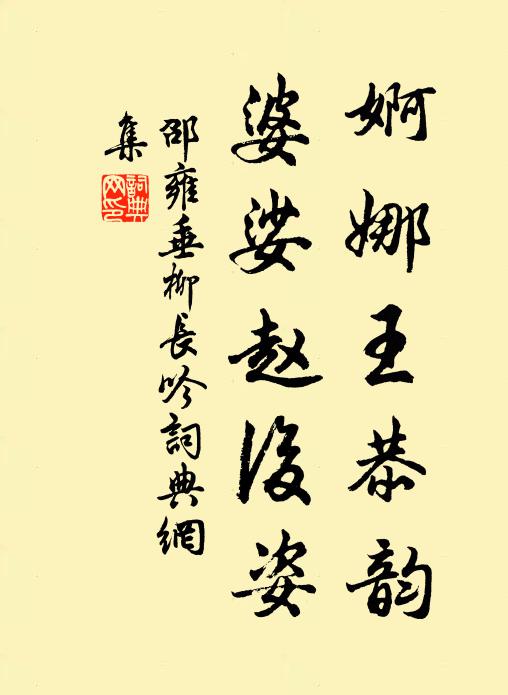 婀娜王恭韵
婆娑赵後姿
邵雍垂柳長吟詞典網
集
詞典
网印